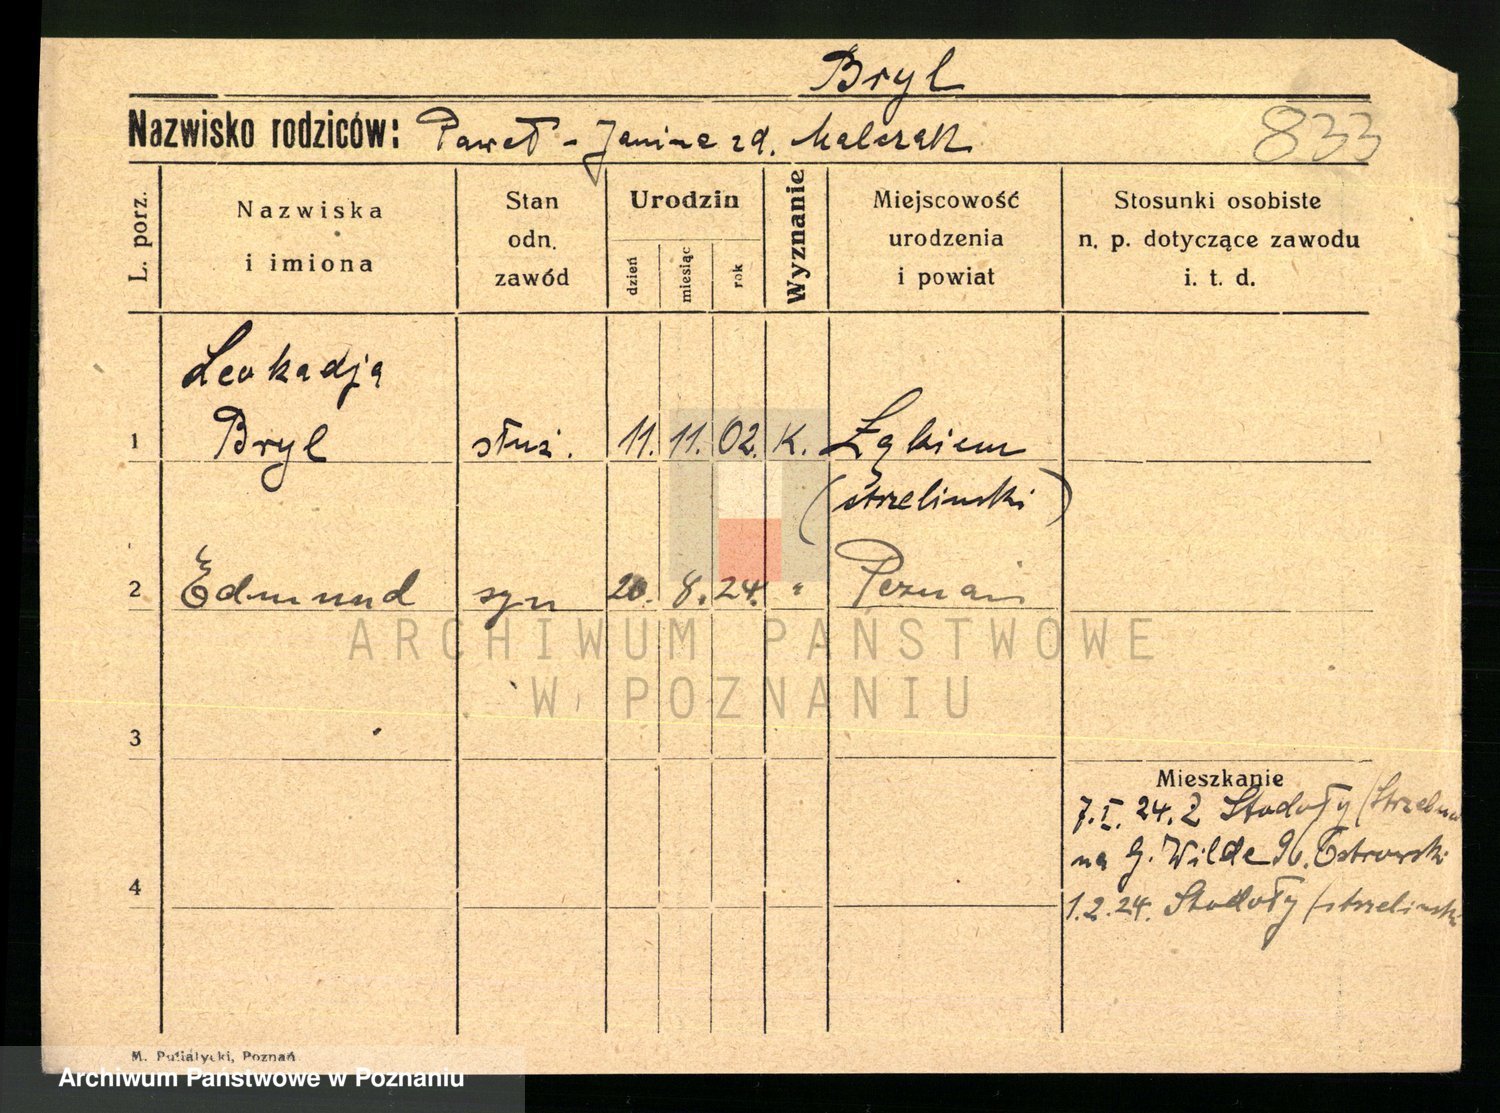 Bryl
Nazwisko rodziców: Paweł - Janina zd. Malczak
833
L. porz.
Nazwiska
i imiona
Stan
odn.
zawód
Urodzin
dzień
miesiąc
rok
Wyznanie
Miejscowość
urodzenia
i powiat
Stosunki osobiste
n. p. dotyczące zawodu
i. t. d.
Leokadja
1 Bryl służ. 11. 11. 02. K.
(strzelinski)
2 Edmund syn 20. 8. 24. " Poznań
ARCHIWUM PAŃSTWOWE
W POZNANIU
3
Mieszkanie
7.I.24. Z Stodoły (Strzelno
na G. Wilde 96. Ostrowski
4
1.2.24. Stodoły (strzelinski
M. Putiatycki, Poznań
Archiwum Państwowe w Poznaniu